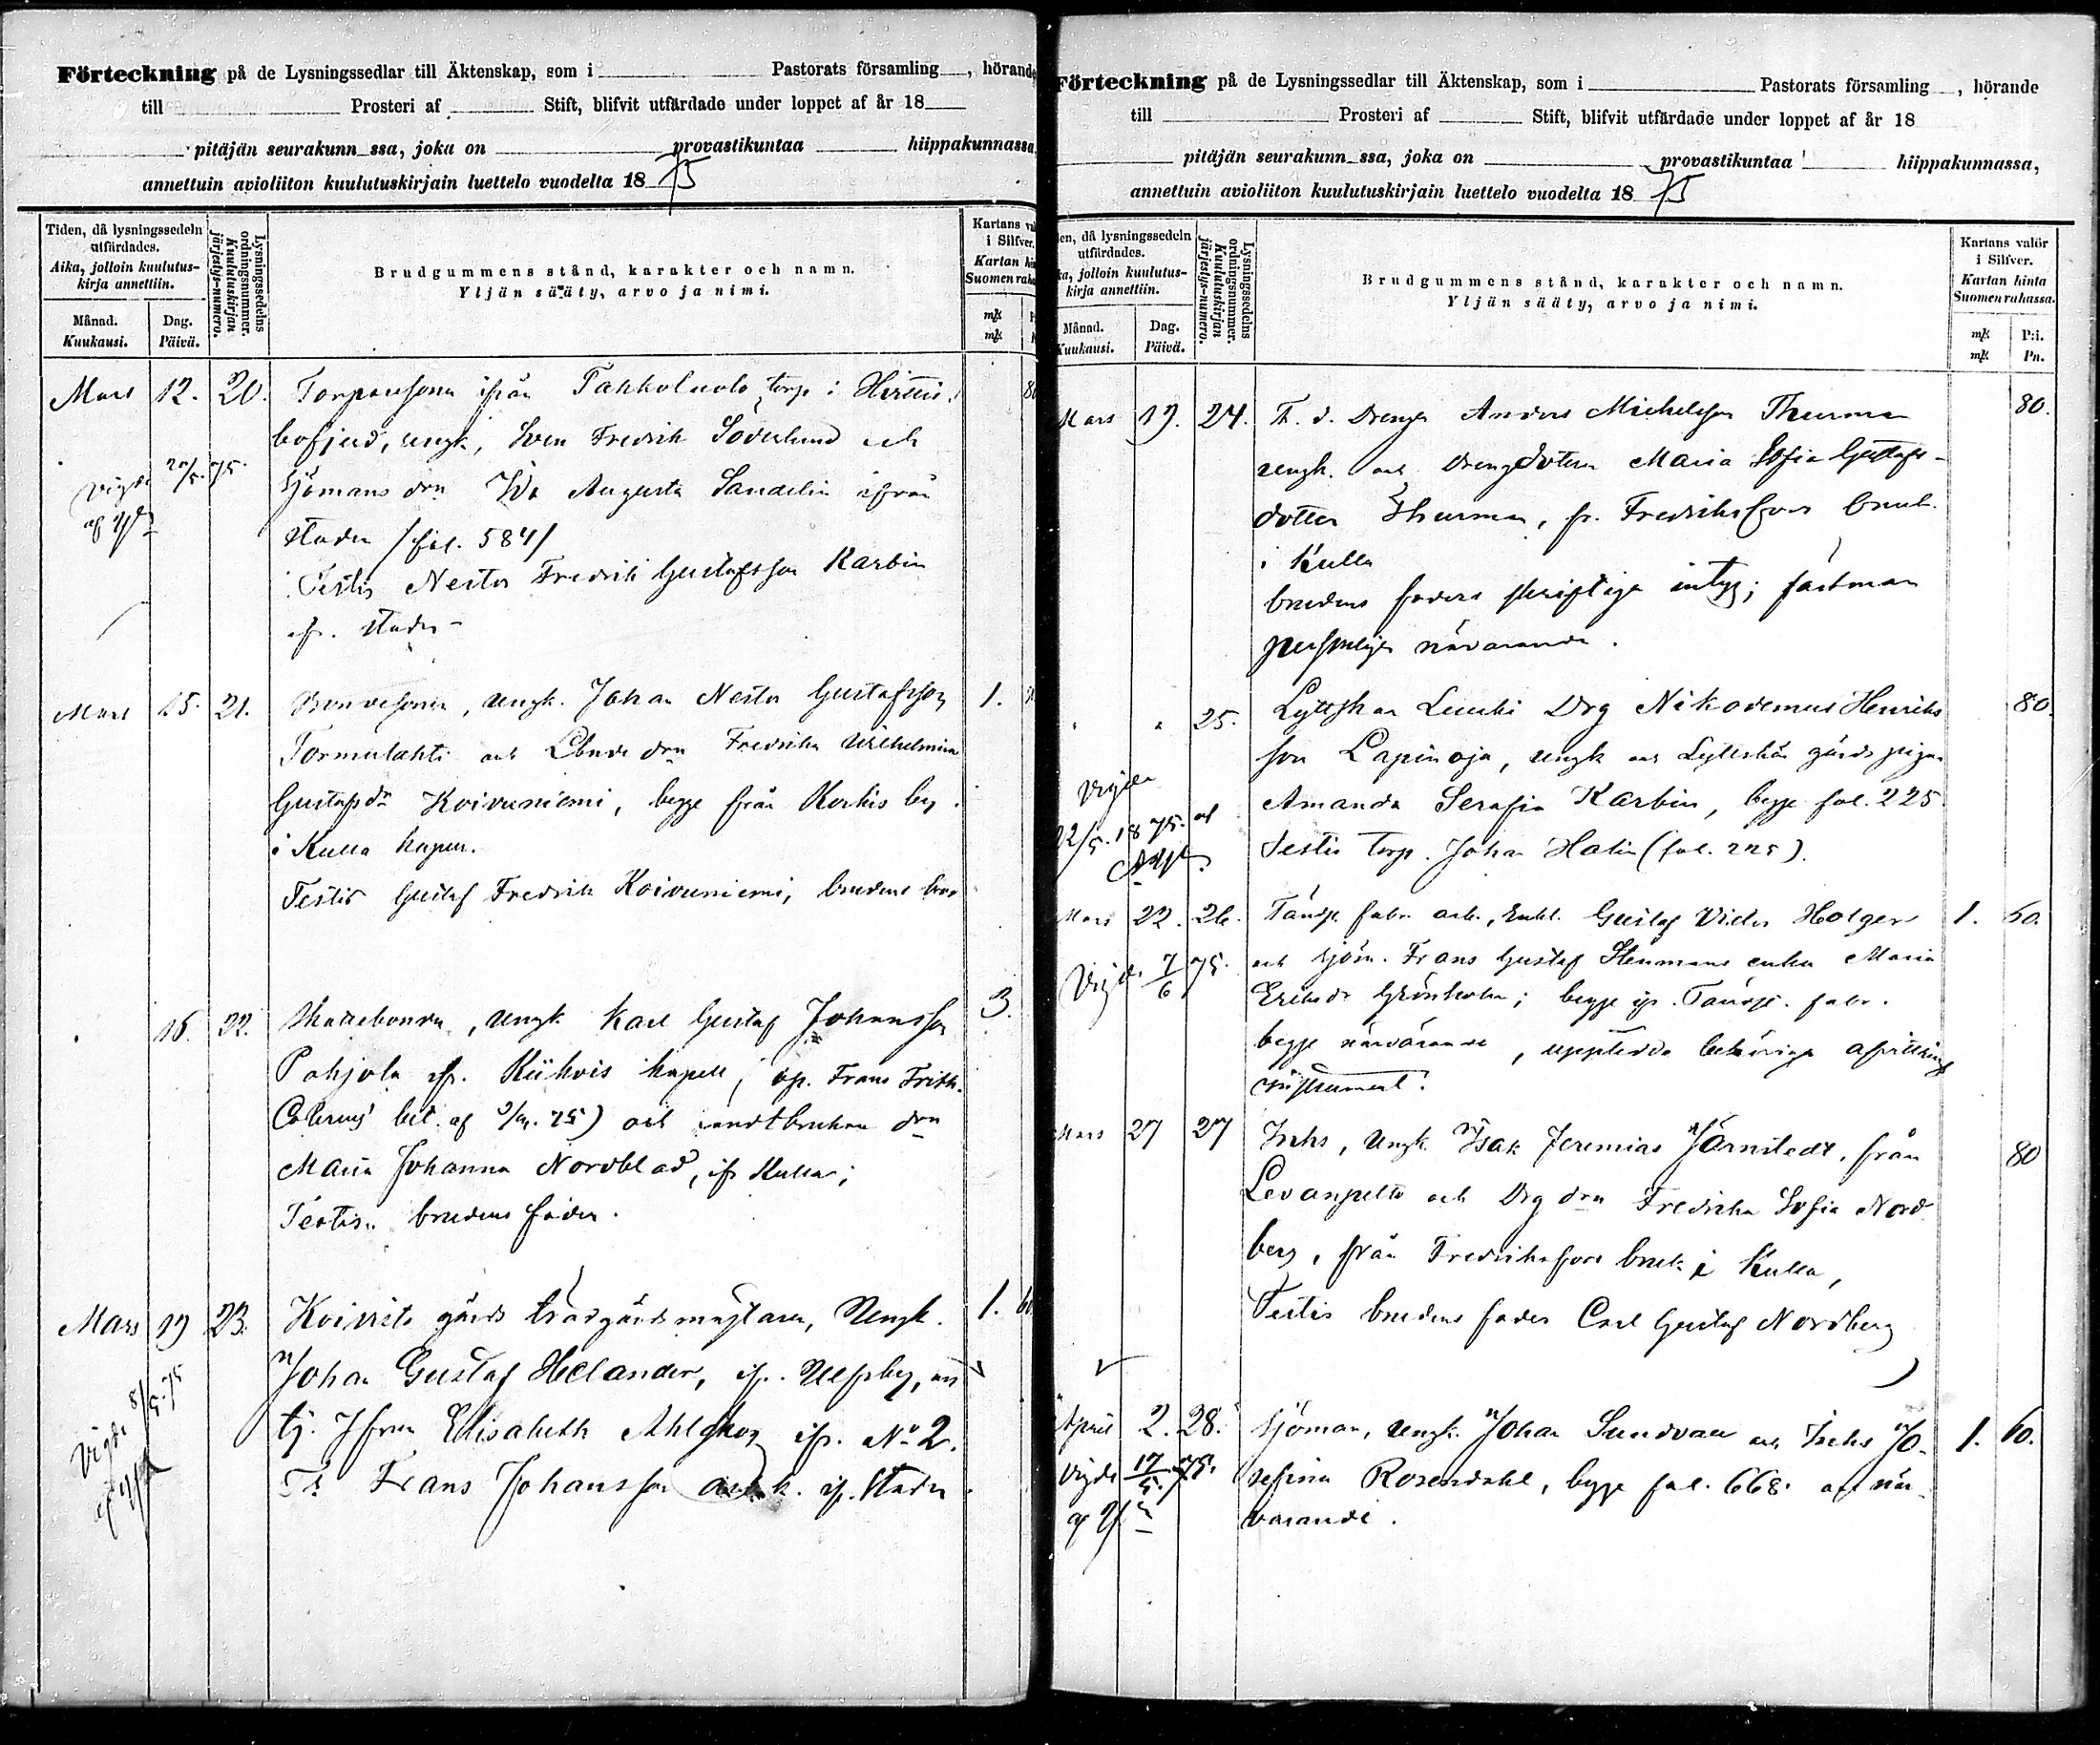 Förteckning på de Lysningssedlar till Äktenskap, som i Pastorats församling , hörande
till Prosteri af Stift, blifvit utfärdade under loppet af år 18
pitäjän seurakunn ssa, joka on provastikuntaa hiippakunnassa
annettuin avioliiton kuulutuskirjain luettelo vuodelta 1875
Tiden, då lysningssedeln utfärdades.
Aika, jolloin kuulutus-kirja annettiin.
Månad. Kuukausi.
Dag. Päivä.
Lysningssedelns ordningsnummer.
Kuulutuskirjan järjestys-numero.
Brudgummens stånd, karakter och namn.
Yljän sääty, arvo ja nimi.
Kartans val
i Silfver.
Kartan hin
Suomen raha
mk
mk
Mars 12. 20. Torparesonen ifrån Tahkoluoto torp i
bofjerd, ungk, Sven Fredrik Söderlund och
Vigde 75. Sjömans drn Ida Augusta Sandelin ifrån
staden /fol. 584/
Testis Nestor Fredrik Gustafsson Karbin
ifr. staden
Mars 15. 21. Bondesonen, ungk. Johan Nestor Gustafsson 1.
Tormulahti och Fredrika Wilhelmina
Gustafsdr Koivuniemi, begge från by
i Kulla kapell.
Testis Gustaf Fredrik Koivuniemi, brudens bror
16. 22. Skattebonden, ungk Karl Gustaf Johansson 3.
Pohjola ifr. Kiikois kapell, Frans Frith.
bet. af och landtbrukare drn
Maria Johanna Nordblad, ifr Kulla;
Testis brudens fader.
Mars 19 23. Koivisto gårds trädgårdsmästaren, Ungk. 1. 60
Johan Gustaf Helander, ifr. Ulfsby, och
Vigde 8/5.75 tj. Jfrun Elisabeth Ahlskog ifr. No 2.
Ts Frans Johansson ifr. staden
Förteckning på de Lysningssedlar till Äktenskap, som i Pastorats församling , hörande
till Prosteri af Stift, blifvit utfärdade under loppet af år 18
pitäjän seurakunn ssa, joka on provastikuntaa hiippakunnassa,
annettuin avioliiton kuulutuskirjain luettelo vuodelta 1875
en, då lysningssedeln utfärdades.
ka, jolloin kuulutus-kirja annettiin.
Månad. Kuukausi.
Dag. Päivä.
Lysningssedelns ordningsnummer.
Kuulutuskirjan järjestys-numero.
Brudgummens stånd, karakter och namn.
Yljän sääty, arvo ja nimi.
Kartans valör
i Silfver.
Kartan hinta
Suomen rahassa.
mk P:i.
mk Pn.
Mars 19. 24. F. d. Drengen Anders Michelsson Thurman 80.
ungk. och drengdotern Maria Sofia Gustafs-
dotter Thurman, fr. Fredriksfors bruk
i Kulla
brudens faders skriftliga intyg; fästman
personligen närvarande.
" " 25. Lyttskär Drg Nikodemus Henriks 80.
son Lapinoja, ungk och Lyttskär gårds pigan
Vigde Amanda Serafia Karbin, begge fol. 225
22/5.1875. af Testis torp. Johan Halin (fol. 225).
Mars 22. 26. Tändst. fabr. arb., Enkl. Gustaf Victor Holger 1. 60.
Vigde 7/6 75. och sjöm. Frans Gustaf Stenmans enka Maria
Eriksdr Grönholm; begge ifr. Tändst. fabr.
begge närvarande, uppledde behöriga afvittrings
instrument.
Mars 27 27 Inhs, Ungk. Isak Jeremias Järnstedt, från 80
Levanpelto och Drg drn Fredrika Sofia Nord
berg, från Fredriksfors bruk i Kulla,
Testis brudens fader Carl Gustaf Nordberg
April 2. 28. Sjöman, ungk. Johan Sundvall och Inhs Jo- 1. 60.
Vigde 17/5.75. sefina Rosendahl, begge fol. 668. och när
varande.